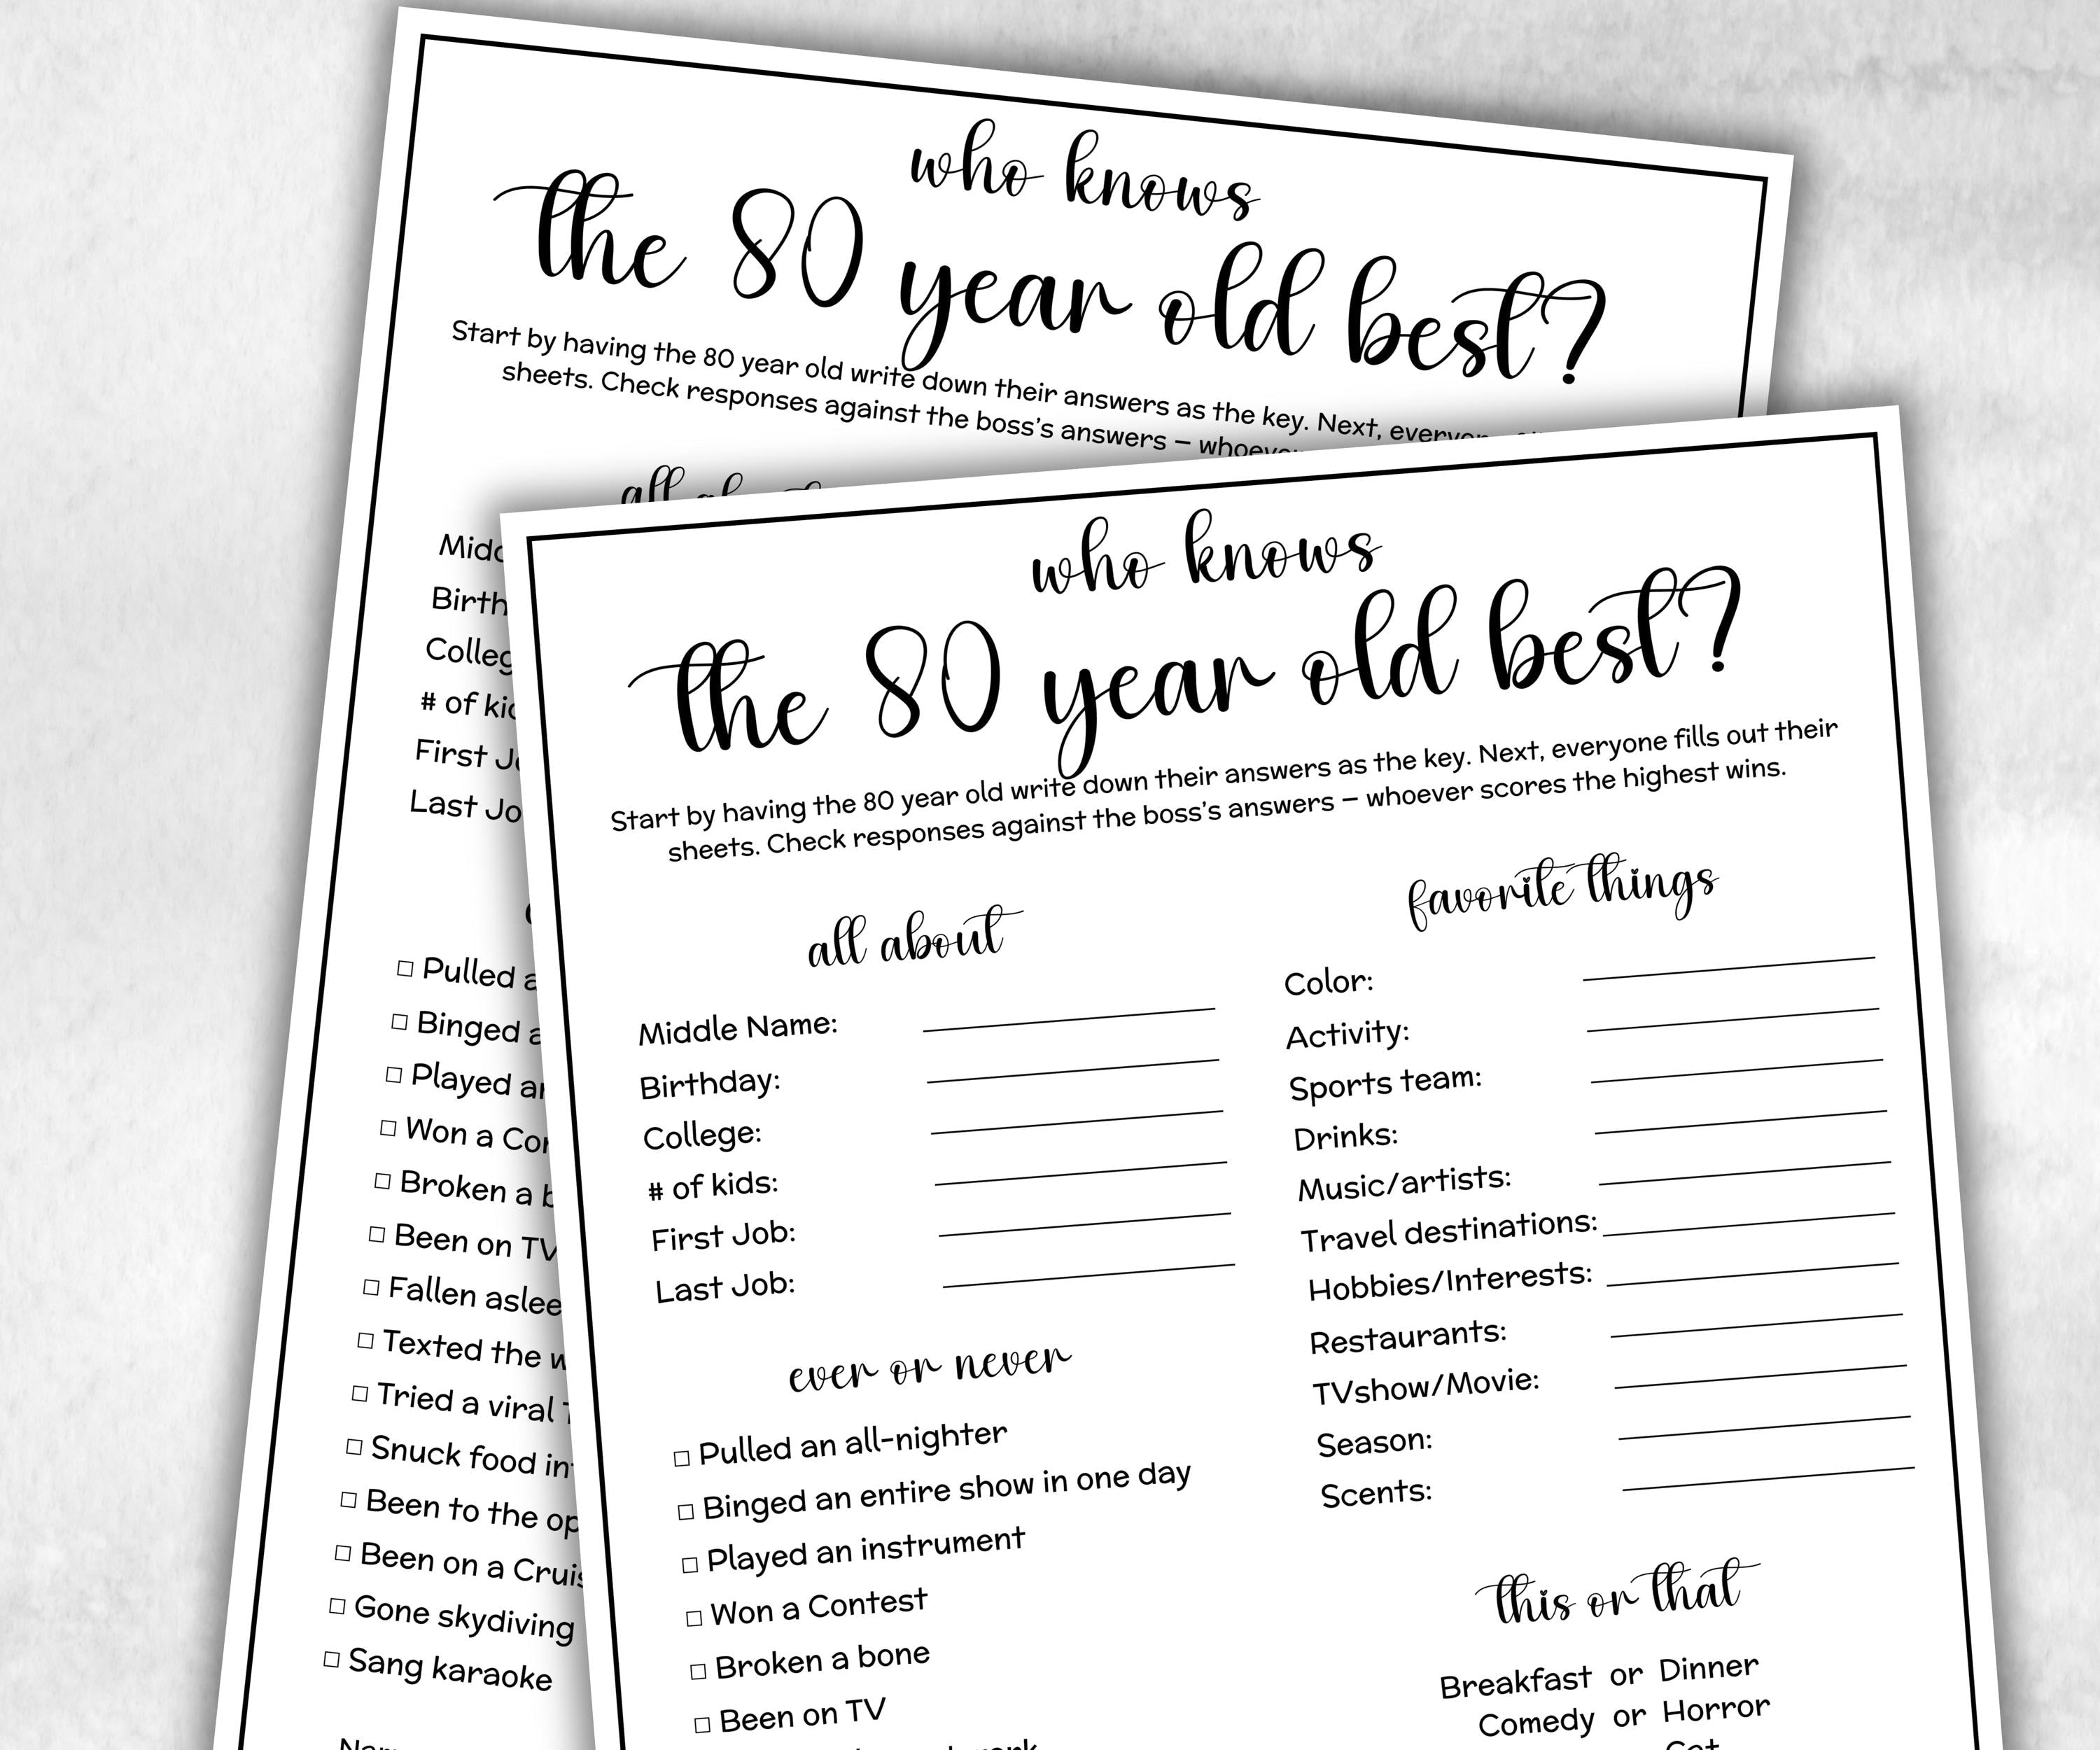 who knows
the 80 year old best?
Start by having the 80 year old write down their answers as the key. Next,
sheets. Check responses against the boss's answers – 
all
Birth
# of
First
Last
□ Pulled
□ Binged
□ Played
□ Won a
□ Broken a
□ Been on TV
□ Fallen
□ Texted the
□ Tried a viral
□ Snuck food
□ Been to the
□ Been on a
□ Gone skydiving
□ Sang karaoke
who knows
the 80 year old best?
Start by having the 80 year old write down their answers as the key. Next, everyone fills out their
sheets. Check responses against the boss's answers – whoever scores the highest wins.
all about
Middle Name:
Birthday:
College:
# of kids:
First Job:
Last Job:
ever or never
□ Pulled an all-nighter
□ Binged an entire show in one day
□ Played an instrument
□ Won a Contest
□ Broken a bone
□ Been on TV
favorite things
Color:
Activity:
Sports team:
Drinks:
Music/artists:
Travel destinations:
Hobbies/Interests:
Restaurants:
TVshow/Movie:
Season:
Scents:
this or that
Breakfast or Dinner
Comedy or Horror